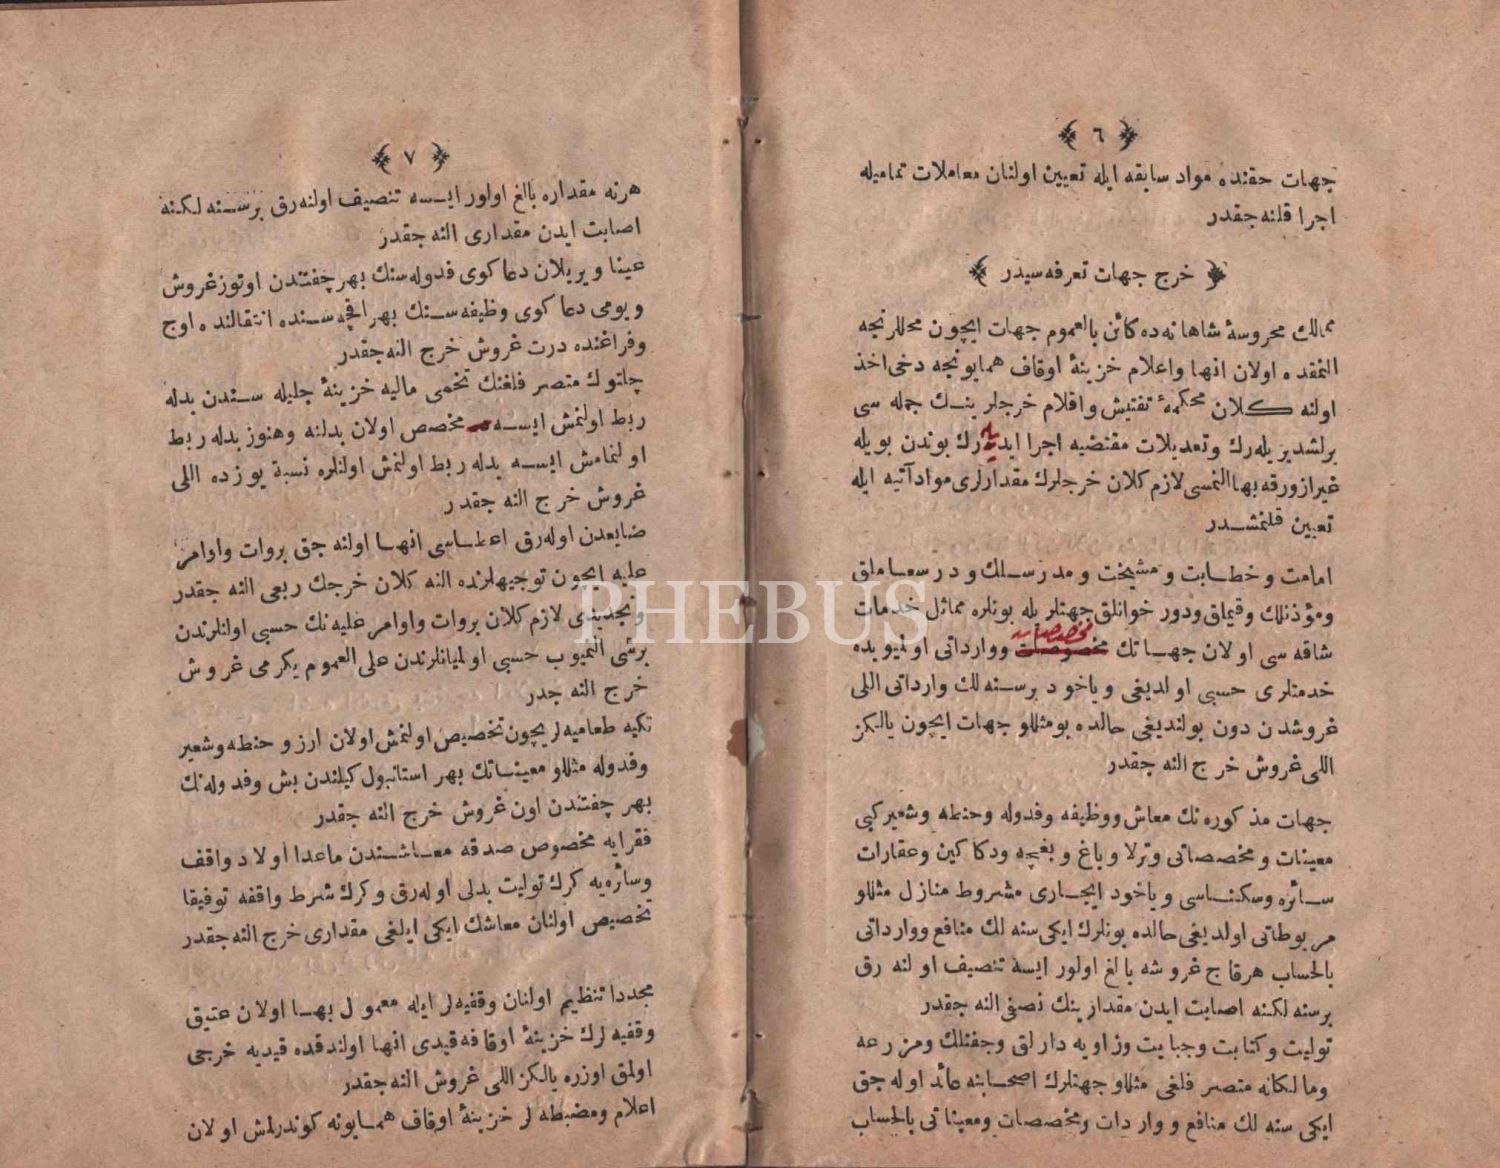 ﴿ ٦ ﴾
جهات حقنده مواد سابقه ايله تعيين اولنان معاملات تماميله
اجرا قلنه جقدر
﴿ خرج جهات تعرفه سيدر ﴾
ممالك محروسهٔ شاهانه ده كائن بالعموم جهات ايچون محللرنجه
النمقده اولان انها واعلام خزينهٔ اوقاف همايونجه دخى اخذ
اولنه كلان محكمهٔ تفتيش واقلام خرجلرينك جمله سى
برلشديريله رك وتعديلات مقتضيه اجرا ايديله رك بوندن بويله
غير از ورقه بها النمسى لازم كلان خرجلرك مقدارلرى مواد آتيه ايله
تعيين قلنمشدر
امامت و خطابت و مشيخت و مدرسلك و درسعاملق
ومؤذنلك وقيماق ودور خوانلق جهتلريله بونلره مماثل خدمات
شاقه سى اولان جهاتك مخصصات وواردات‌ى اولميوبده
خدمتلرى حسبى اولديغى وياخود برسنه لك وارداتى اللى
غروشدن دون بولنديغى حالده بومثللو جهات ايچون يالكز
اللى غروش خرج النه جقدر
جهات مذكوره نك معاش ووظيفه وفدوله وحنطه وشعير كبى
معينات ومخصصاتى وترلا وباغ وبغچه ودكاكين وعقارات
سائره وسكناسى وياخود ايجارى مشروط منازل مثللو
مربوطاتى اولديغى حالده بونلرك ايكى سنه لك منافع ووارداتى
بالحساب هرقاچ غروشه بالغ اولور ايسه تنصيف اولنه رق
برسنه لكنه اصابت ايدن مقدارينك نصفى النه جقدر
توليت وكتابت وجبايت وزاويه دارلق وچفتلك ومزرعه
ومالكانه متصرفلغى مثللو جهتلرك اصحابنه عائد اوله جق
ايكى سنه لك منافع وواردات ومخصصات ومعيناتى بالحساب
﴿ ٧ ﴾
هرنه مقداره بالغ اولور ايسه تنصيف اولنه رق برسنه لكنه
اصابت ايدن مقدارى النه جقدر
عينا ويريلان دعاكوى فدوله سنك بهر چفتندن اوتوز غروش
ويومى دعاكوى وظيفه سنك بهر اقچه سنده انتقالنده اوچ
وفراغنده درت غروش خرج النه جقدر
چلتوك متصرفلغنك تخمى ماليه خزينهٔ جليله سندن بدله
ربط اولنمش ايسه مخصص اولان بدلنه وهنوز بدله ربط
اولنمامش ايسه بدله ربط اولنمش اولنلره نسبة يوزده اللى
غروش خرج النه جقدر
ضايعدن اوله رق اعطاسى انها اولنه جق بروات واوامر
عليه ايچون توجيهلرنده النه كلان خرجك ربعى النه جقدر
وتجديدى لازم كلان بروات واوامر عليه نك حسبى اولنلرندن
برشى النميوب حسبى اولميانلرندن على العموم يكرمى غروش
خرج النه جدر
تكيه طعاميه لريچون تخصيص اولنمش اولان ارز وحنطه وشعير
وفدوله مثللو معيناتك بهر استانبول كيلندن بش وفدوله نك
بهر چفتندن اون غروش خرج النه جقدر
فقرايه مخصوص صدقه معاشندن ماعدا اولاد واقف
وسائره يه كرك توليت بدلى اوله رق وكرك شرط واقفه توفيقا
تخصيص اولنان معاشك ايكى ايلغى مقدارى خرج النه جقدر
مجددا تنظيم اولنان وقفيه لر ايله معمول بها اولان عتيق
وقفيه لرك خزينهٔ اوقافه قيدى انها اولندقده قيديه خرجى
اولمق اوزره يالكز اللى غروش النه جقدر
اعلام ومضبطه لر خزينهٔ اوقاف همايونه كوندرلمش اولان
PHEBUS